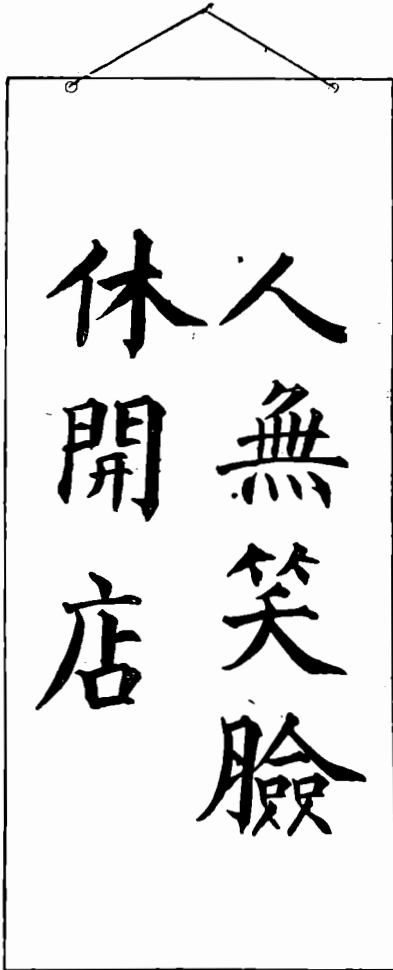 人無笑臉
休開店